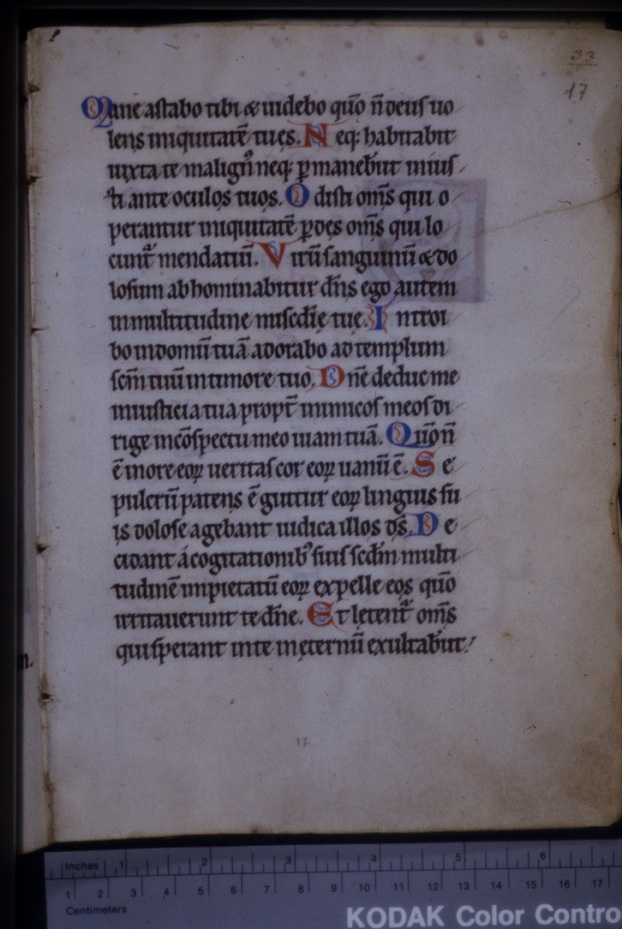 33
17
Mane astabo tibi & uidebo qu̅o n̅ deus uo
lens iniquitate̅ tu es. Neq; habitabit
iuxta te malign᷒ neq; p̲maneb̅unt inius
ti ante oculos tuos. Odisti om̅s qui o
perantur iniquitate̅ p̲des om̅s qui lo
cunt᷑ mendatiu̅. Viru̅ sanguinu̅ & do
losum abhominabitur dn̅s ego autem
in multitudine misc̅die tuę. Introi
bo in domu̅ tua̅ adorabo ad templum
sc̅m tuu̅ in timore tuo. Dn̅e deduc me
in iusticia tua propt᷑ inimicos meos di
rige in co̅spectu meo uiam tua̅. Quo̅n̅
e̅ in ore eoꝝ ueritas cor eoꝝ uanu̅ e̅. Se
pulcru̅ patens e̅ guttur eoꝝ linguis su
is dolose agebant iudica illos d̅s. De
cidant a cogitationib᷒ suis secd̅m multi
tudine̅ impietatu̅ eoꝝ expelle eos quo̅
irritauerunt te dn̅e. Et letent᷑ om̅s
qui sperant in te in ęternu̅ exultab̅unt
17
Inches 1 2 3 4 5 6
1 2 3 4 5 6 7 8 9 10 11 12 13 14 15 16 17
Centimeters
KODAK Color Contro